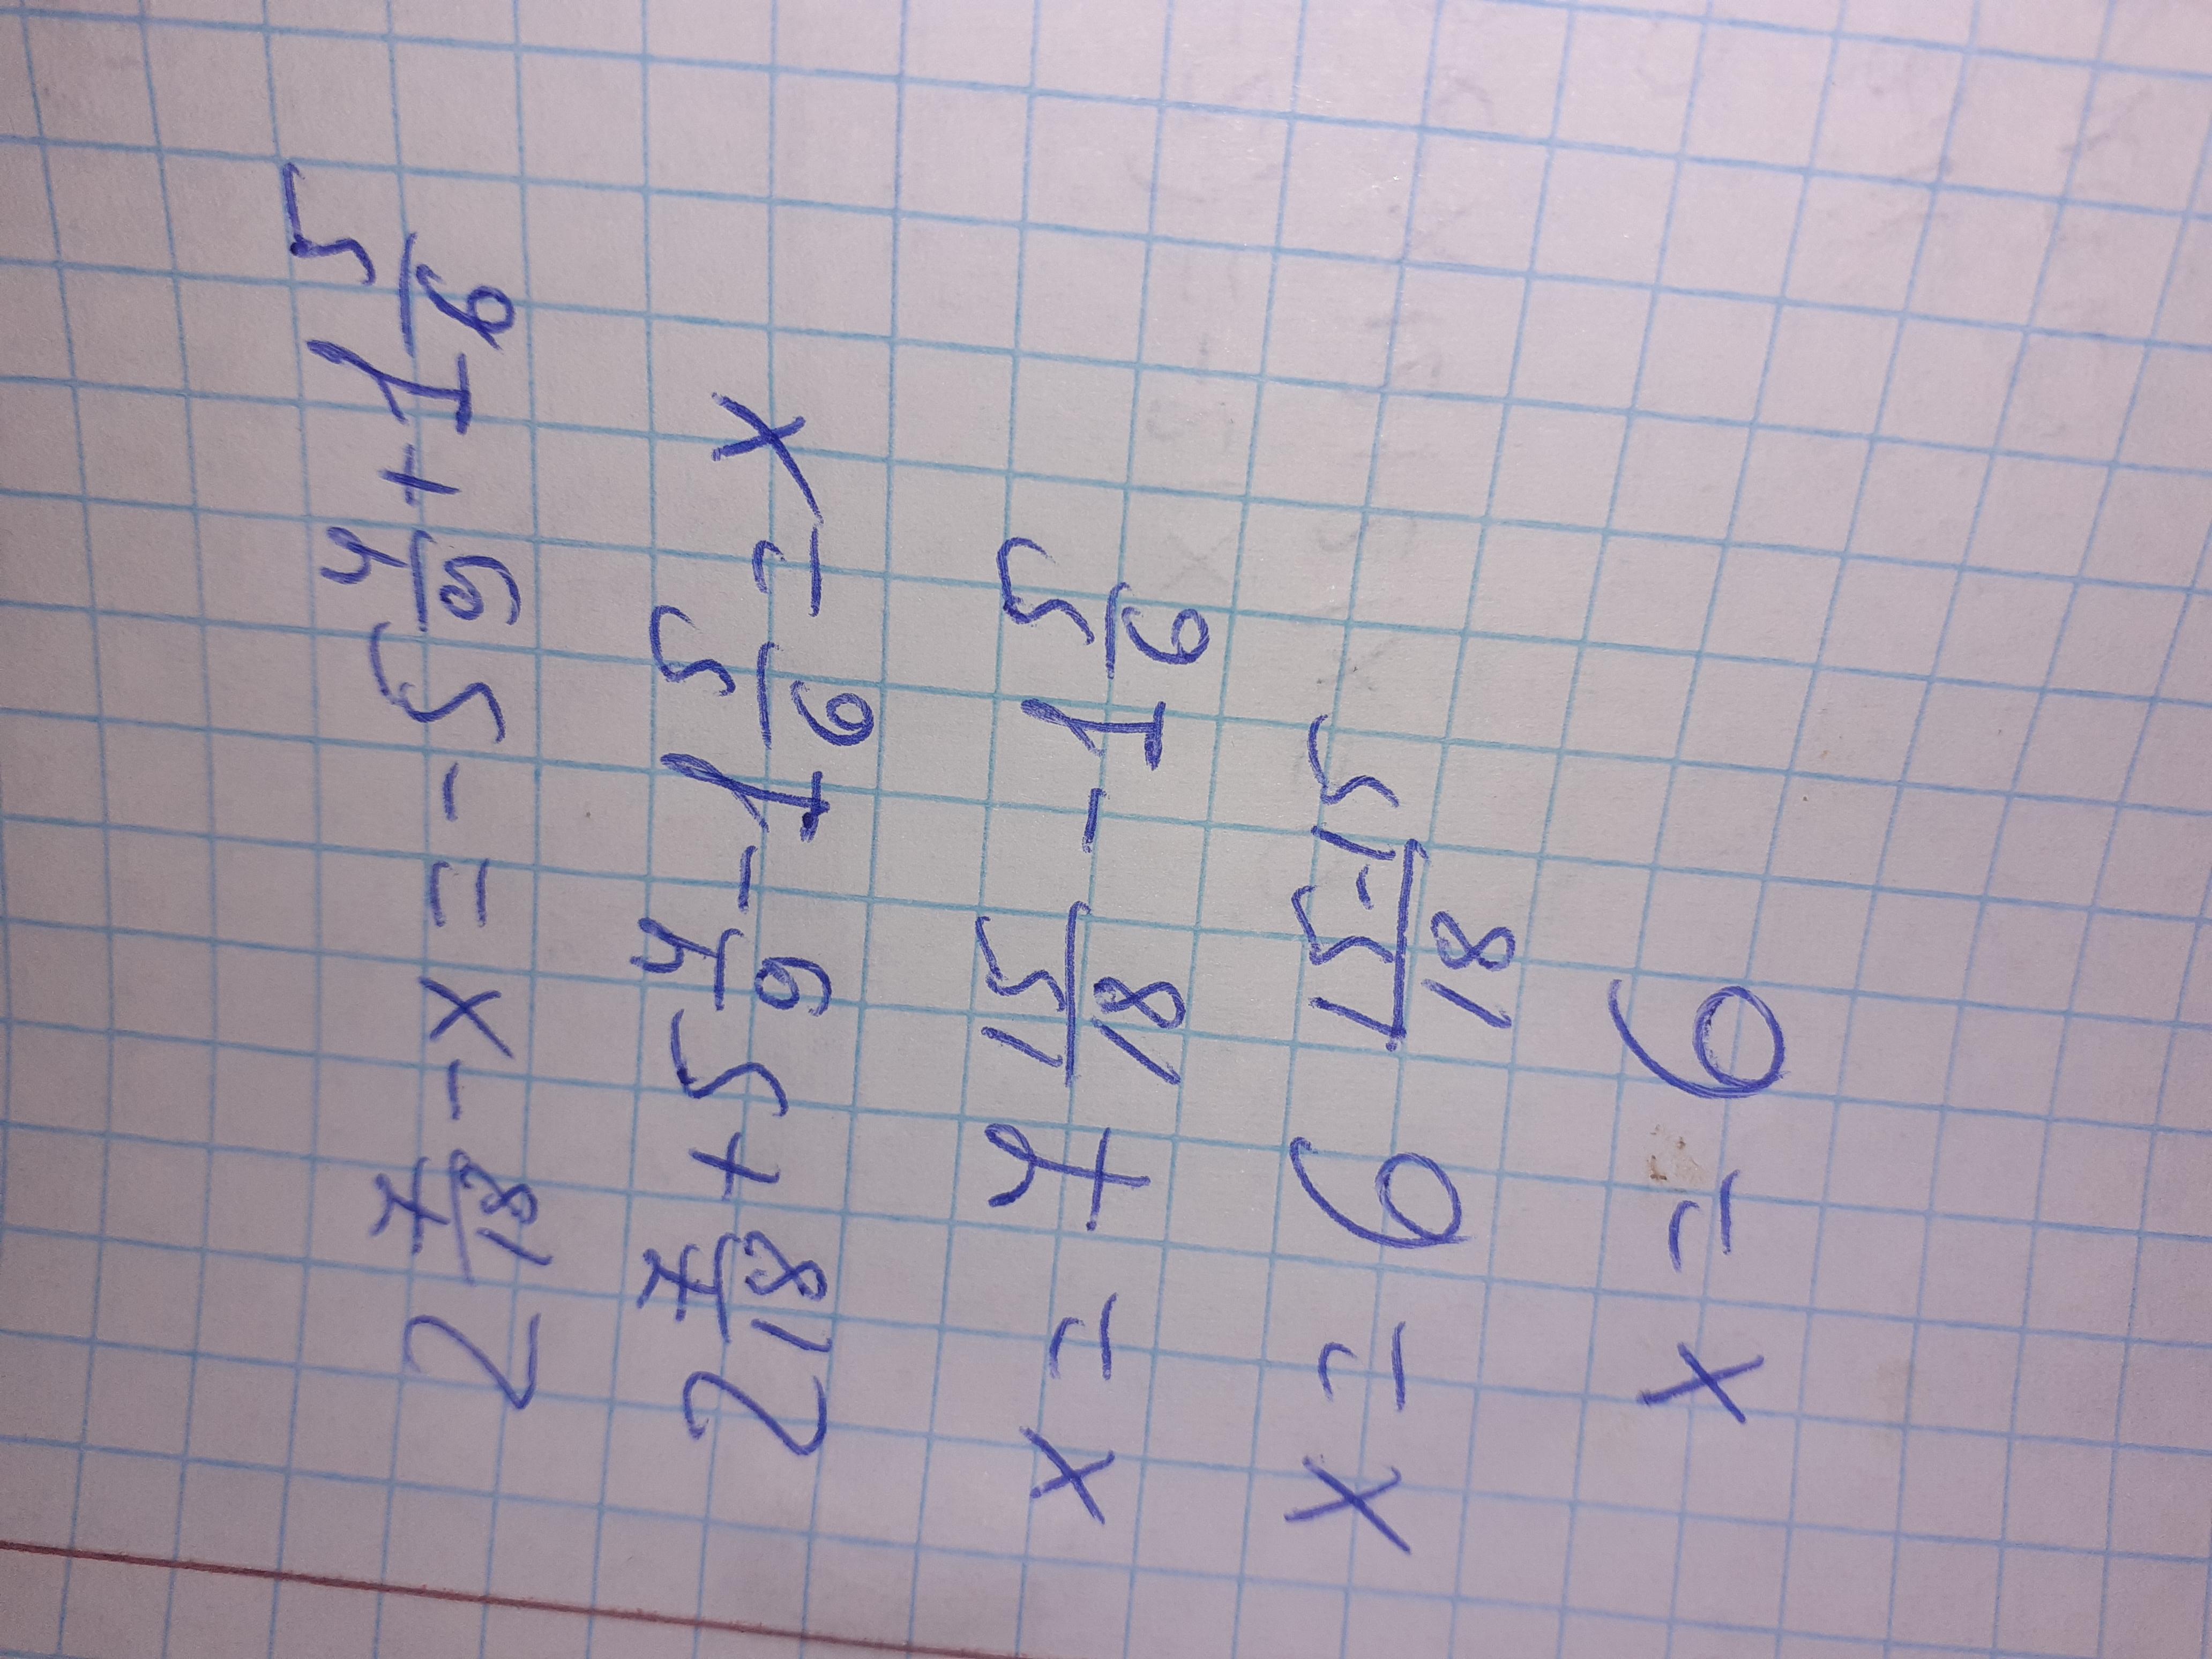 2 7/18 - x = - 5 4/9 + 1 5/6
2 7/18 + 5 4/9 - 1 5/6 = x
x = 7 15/18 - 1 5/6
x = 6 15-15/18
x = 6